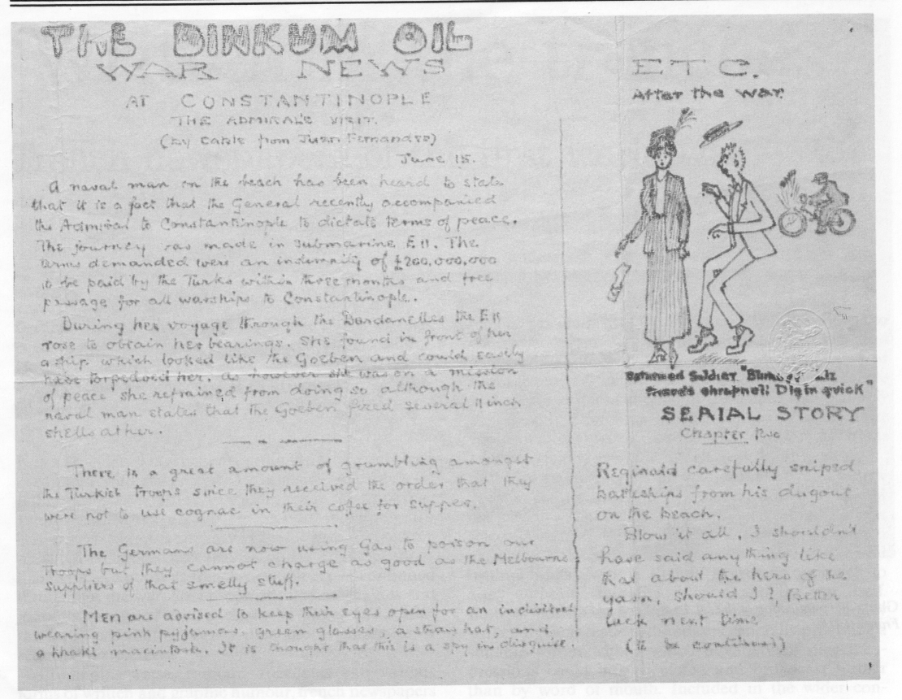 THE DINKUM OIL
WAR NEWS
AT CONSTANTINOPLE
THE ADMIRAL'S VISIT.
(By cable from Juan Fernandez)
June 15.
A naval man on the beach has been heard to state
that it is a fact that the General recently accompanied
the Admiral to Constantinople to dictate terms of peace.
The journey was made in submarine E11. The
terms demanded were an indemnity of £200,000,000
to be paid by the Turks within three months and free
passage for all warships to Constantinople.
During her voyage through the Dardanelles the E11
rose to obtain her bearings. She found in front of her
a ship which looked like the Goeben and could easily
have torpedoed her. As however she was on a mission
of peace she refrained from doing so although the
naval man states that the Goeben fired several 11 inch
shells at her.
There is a great amount of grumbling amongst
the Turkish troops since they received the order that they
were not to use cognac in their coffee for supper.
The Germans are now using Gas to poison our
troops but they cannot charge as good as the Melbourne
suppliers of that smelly stuff.
MEN are advised to keep their eyes open for an individual
wearing pink pyjamas, green glasses, a straw hat, and
a khaki macintosh. It is thought that this is a spy in disguise.
ETC.
After the war.
Returned Soldier
shrapnel! Dig in quick"
SERIAL STORY
Chapter Two
Reginald carefully sniped
bateships from his dugout
on the beach.
Blow it all, I shouldn't
have said anything like
that about the hero of the
yarn, should I?, Better
luck next time
(to be continued)